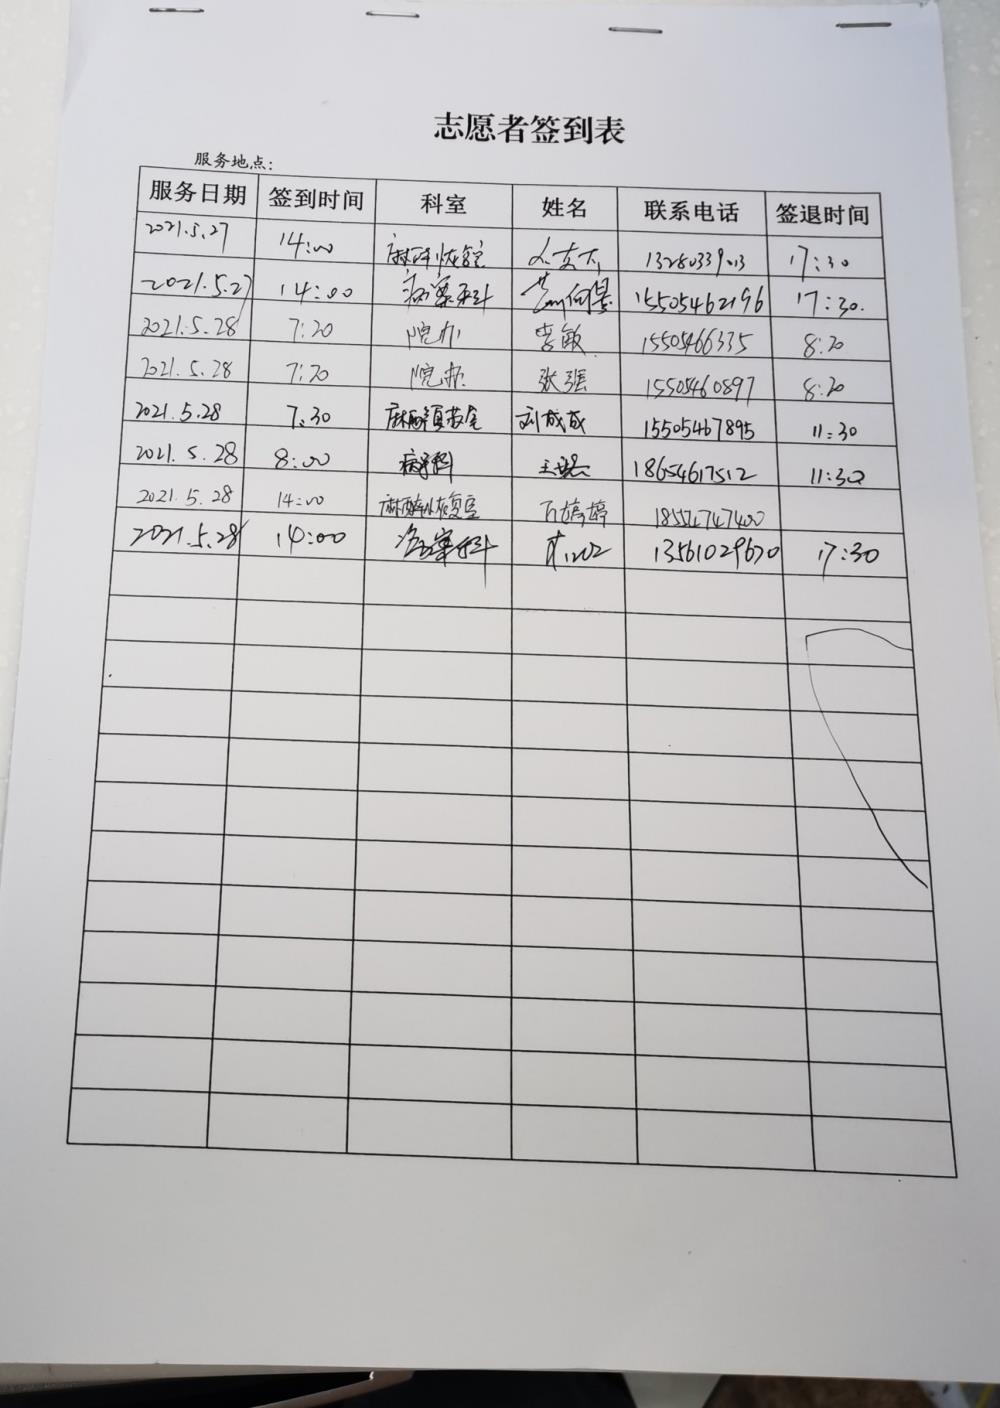 志愿者签到表
服务地点:
服务日期 签到时间 科室 姓名 联系电话 签退时间
2021.5.27 14:00 17:30
2021.5.27 14:00 病案科 15505462196 17:30.
2021.5.28 7:20 院办 李敏 15505466335 8:20
2021.5.28 7:20 院办 张强 15505460897 8:20
2021.5.28 7:30 刘成成 15505467895 11:30
2021.5.28 8:00 18654617512 11:30
2021.5.28 14:00 麻醉恢复室 婷婷 18554747400
2021.5.28 14:00 病案科 13561029670 17:30